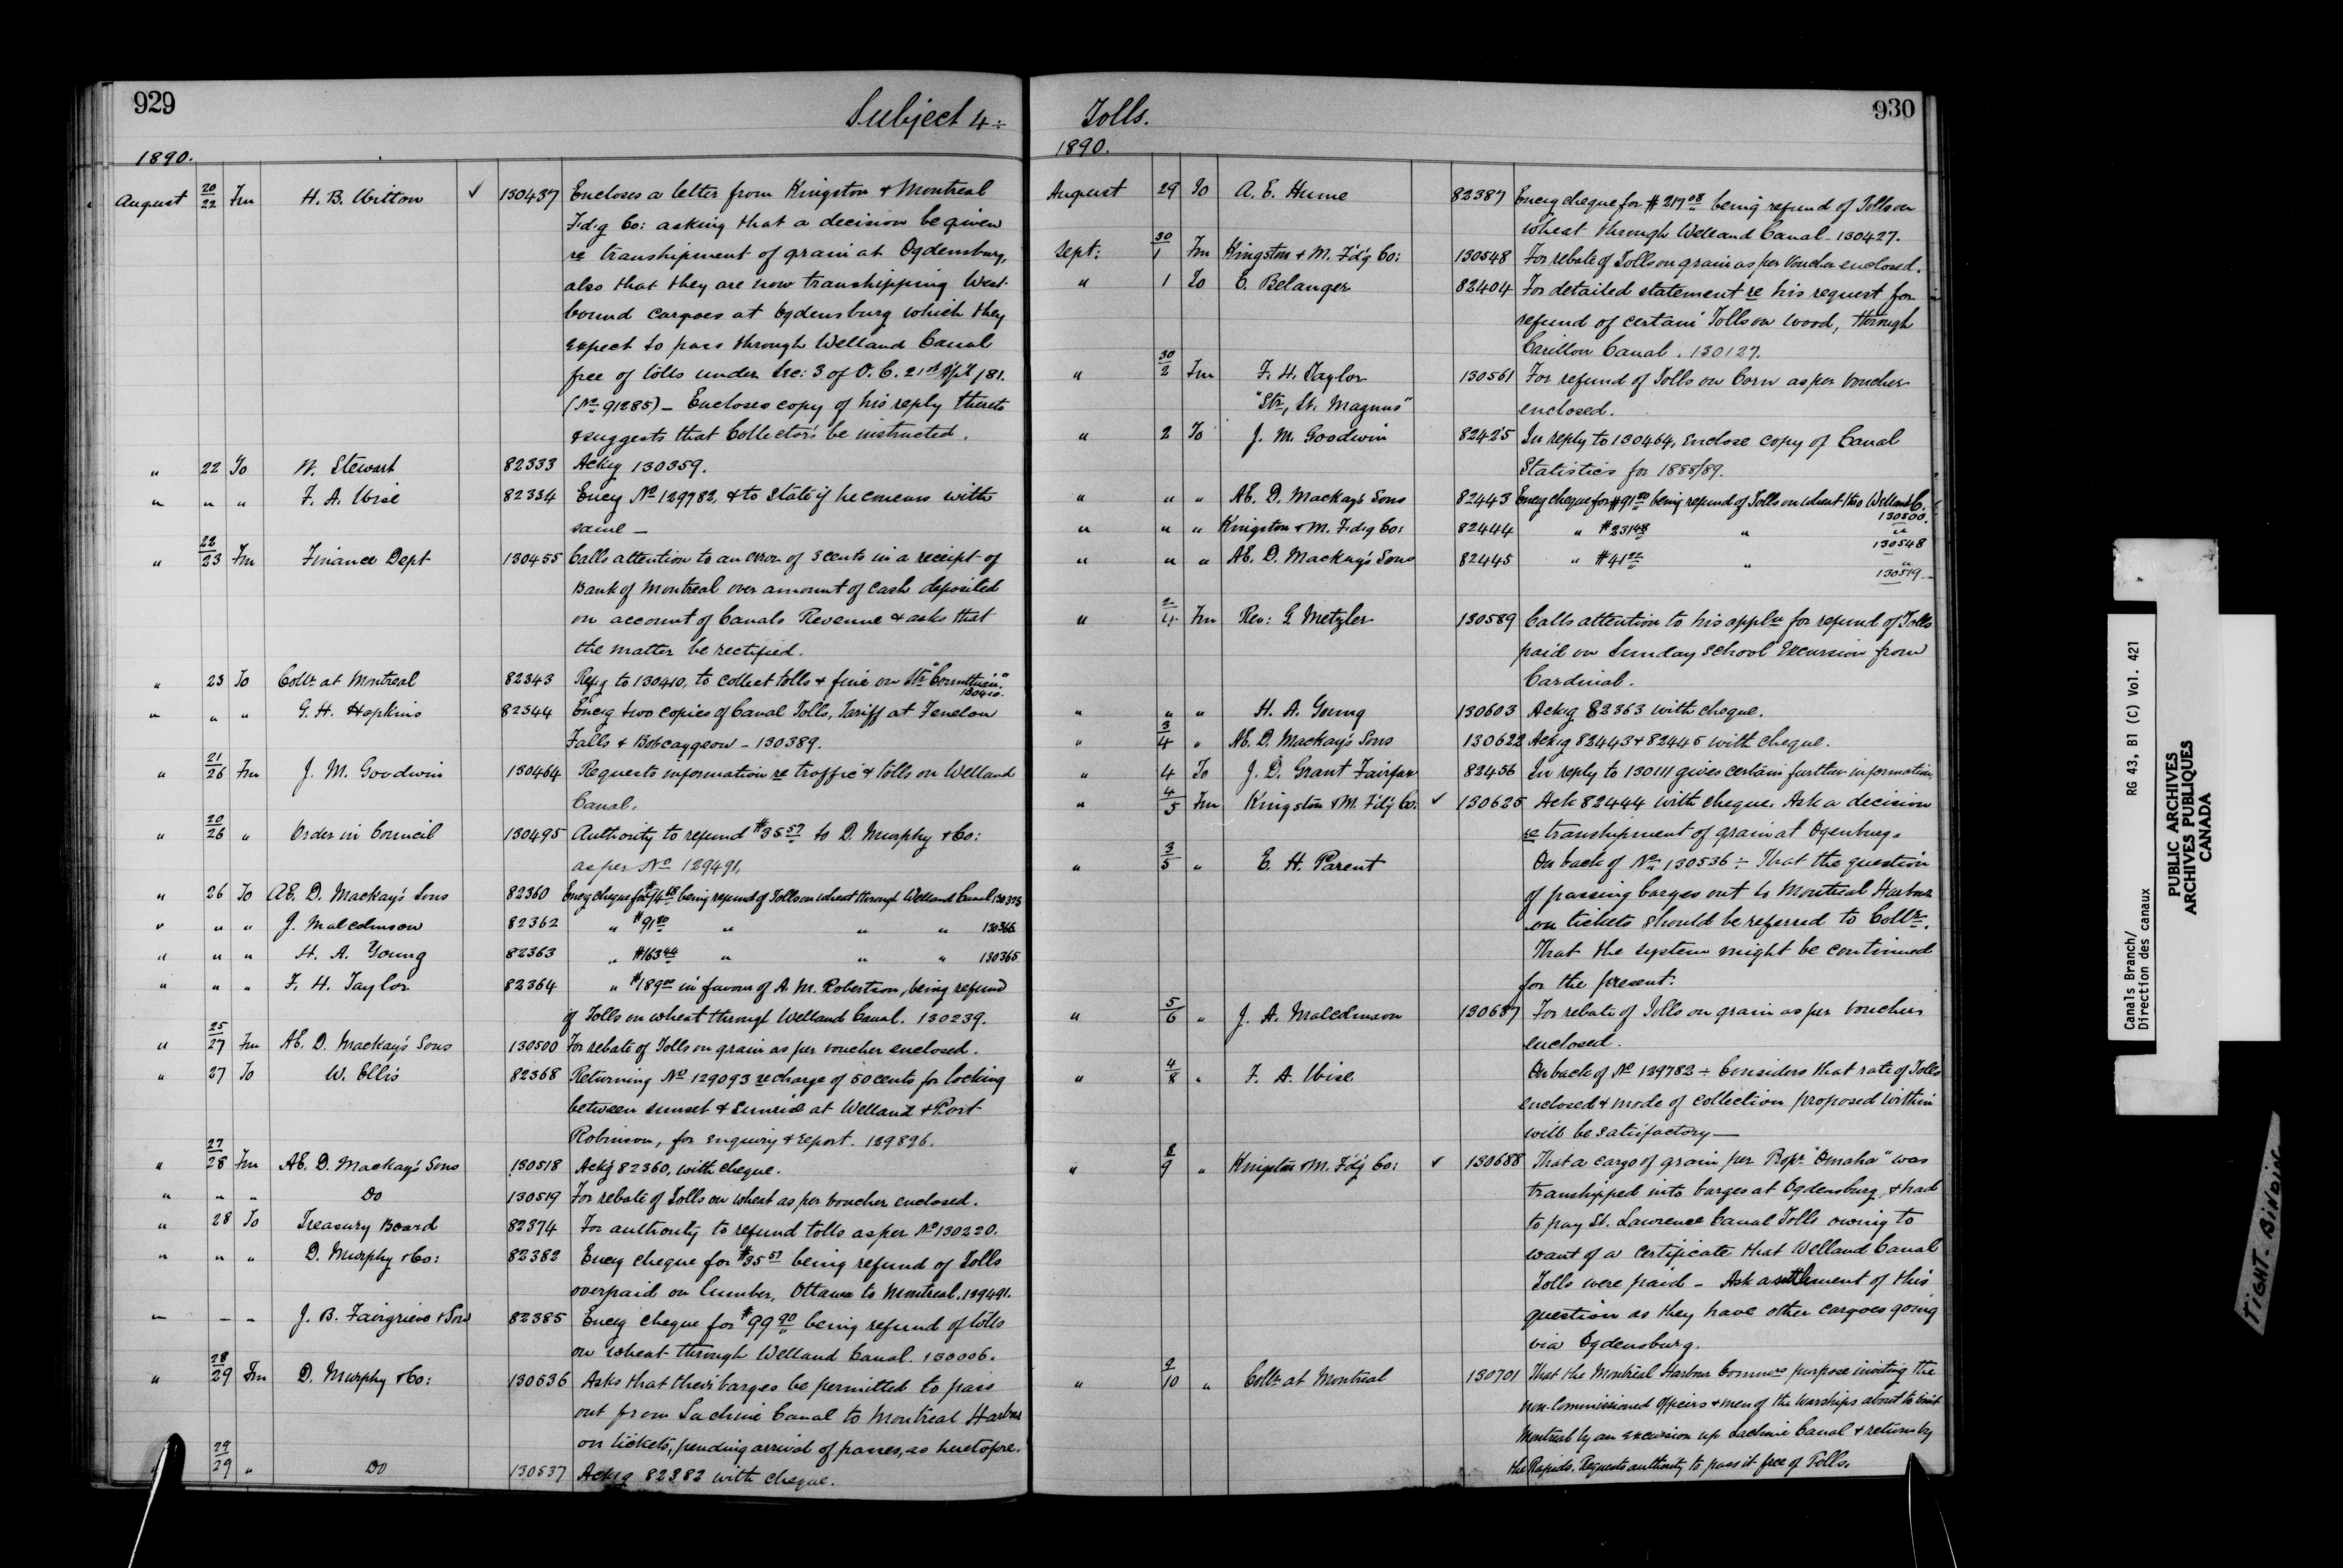 929
Subject 4 ÷
1890.
August 20/22 Fm H. B. Witton ✓ 130437 Encloses a letter from Kingston & Montreal
F'd'g Co: asking that a decision be given
re transhipment of grain at Ogdensburg,
also that they are now transhipping West-
bound cargoes at Ogdensburg which they
expect to pass through Welland Canal
free of tolls under Sec: 3 of O. C. 21st Apl /81.
(No 91285) — Encloses copy of his reply thereto
& suggests that Collectors be instructed.
" 22 To W. Stewart 82333 Ackg 130359.
" " " F. A. Wise 82334 Encg No 129782, & to state if he concurs with
same —
" 22/23 Fm Finance Dept 130455 Calls attention to an error of 3 cents in a receipt of
Bank of Montreal over amount of cash deposited
on account of Canals Revenue & asks that
the matter be rectified.
" 23 To Collr at Montreal 82343 Repg to 130410, to collect tolls & fine on Str "Corinthian".
130410.
" " " G. H. Hopkins 82344 Encg two copies of Canal Tolls, Tariff at Fenelon
Falls & Bobcaygeon — 130389.
" 21/26 Fm J. M. Goodwin 130464 Requests information re traffic & tolls on Welland
Canal.
" 20/26 " Order in Council 130495 Authority to refund $35.57 to D. Murphy & Co:
as per No 129491.
" 26 To AE. D. Mackay's Sons 82360 Encg cheque for $ being refund of Tolls on wheat through Welland Canal
" " " J. Malcolmson 82362 " $91.80 " " " 130366
" " " H. A. Young 82363 " $163.44 " " " 130365
" " " F. H. Taylor 82364 " $189.00 in favour of A. M. Robertson, being refund
of Tolls on wheat through Welland Canal. 130239.
" 25/27 Fm AE. D. Mackay's Sons 130500 For rebate of Tolls on grain as per voucher enclosed.
" 27 To W. Ellis 82368 Returning No 129093 re charge of 50 cents for locking
between sunset & sunrise at Welland & Port
Robinson, for enquiry & report. 129896.
" 27/28 Fm AE. D. Mackay's Sons 130518 Ackg 82360, with cheque.
" " " Do 130519 For rebate of Tolls on wheat as per voucher enclosed.
" 28 To Treasury Board 82374 For authority to refund tolls as per No 130220.
" " " D. Murphy & Co: 82382 Encg cheque for $35.57 being refund of Tolls
overpaid on lumber, Ottawa to Montreal. 129491.
" — " J. B. Fairgrieve & Son 82385 Encg cheque for $99.90 being refund of tolls
on wheat through Welland Canal. 130006.
" 28/29 Fm D. Murphy & Co: 130536 Asks that their barges be permitted to pass
out from Lachine Canal to Montreal Harbour
on tickets, pending arrival of passes, as heretofore.
" 29/29 " Do 130537 Ackg 82382 with cheque.
Tolls.
930
1890.
August 29 To A. E. Hume 82387 Encg cheque for $217.08 being refund of Tolls on
wheat through Welland Canal — 130427.
Sept: 30/1 Fm Kingston & M. F'd'g Co: 130548 For rebate of Tolls on grain as per voucher enclosed.
" 1 To E. Belanger 82404 For detailed statement re his request for
refund of certain Tolls on wood, through
Carillon Canal. 130127.
" 30/2 Fm F. H. Taylor 130561 For refund of Tolls on Corn as per voucher
"Str, St. Magnus" enclosed.
" 2 To J. M. Goodwin 82425 In reply to 130464, enclose copy of Canal
Statistics for 1888/89.
" " " AE. D. Mackay's Sons 82443 Encg cheque for $91.80 being refund of Tolls on wheat thro Welland C.
130500.
" " " Kingston & M. F'd'g Co: 82444 " $231.48 " "
130548
" " " AE. D. Mackay's Sons 82445 " $41.22 " "
130519
" 2/4 Fm Rev: G. Metzler 130589 Calls attention to his appln for refund of Tolls
paid on Sunday School Excursion from
Cardinal.
" " " H. A. Young 130603 Ackg 82363 with cheque.
" 3/4 " AE. D. Mackay's Sons 130622 Ackg 82443 & 82445 with cheque.
" 4 To J. D. Grant Fairfax 82456 In reply to 130111 gives certain further information
" 4/5 Fm Kingston & M. F'd'g Co: ✓ 130625 Ack 82444 with cheque. Ask a decision
re transhipment of grain at Ogenburg.
" 3/5 " E. H. Parent On back of No 130536 ÷ That the question
of passing barges out to Montreal Harbour
on tickets should be referred to Collr.
That the system might be continued
for the present.
" 5/6 " J. A. Malcolmson 130637 For rebate of Tolls on grain as per voucher
enclosed.
" 4/8 " F. A. Wise On back of No 129782 ÷ Considers that rate of Tolls
enclosed & mode of collection proposed within
will be satisfactory —
" 8/9 " Kingston & M. F'd'g Co: ✓ 130688 That a cargo of grain per Propr "Omaha" was
transhipped into barges at Ogdensburg, & had
to pay St. Lawrence Canal Tolls owing to
want of a certificate that Welland Canal
Tolls were paid — Ask a settlement of this
question as they have other cargoes going
via Ogdensburg.
" 9/10 " Collr at Montreal 130701 That the Montreal Harbour Commrs purpose inviting the
non-Commissioned Officers & men of the warships about to visit
Montreal by an excursion up Lachine Canal & return by
the Rapids. Requests authority to pass it free of Tolls.
Canals Branch/ RG 43, B1 (C) Vol. 421
Direction des canaux
PUBLIC ARCHIVES
ARCHIVES PUBLIQUES
CANADA
TIGHT BINDING